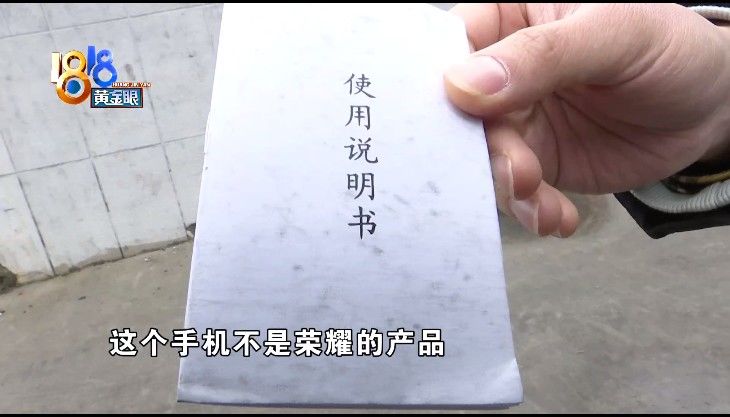 1818
HUANG JIN YAN
黄金眼
使用说明书
这个手机不是荣耀的产品